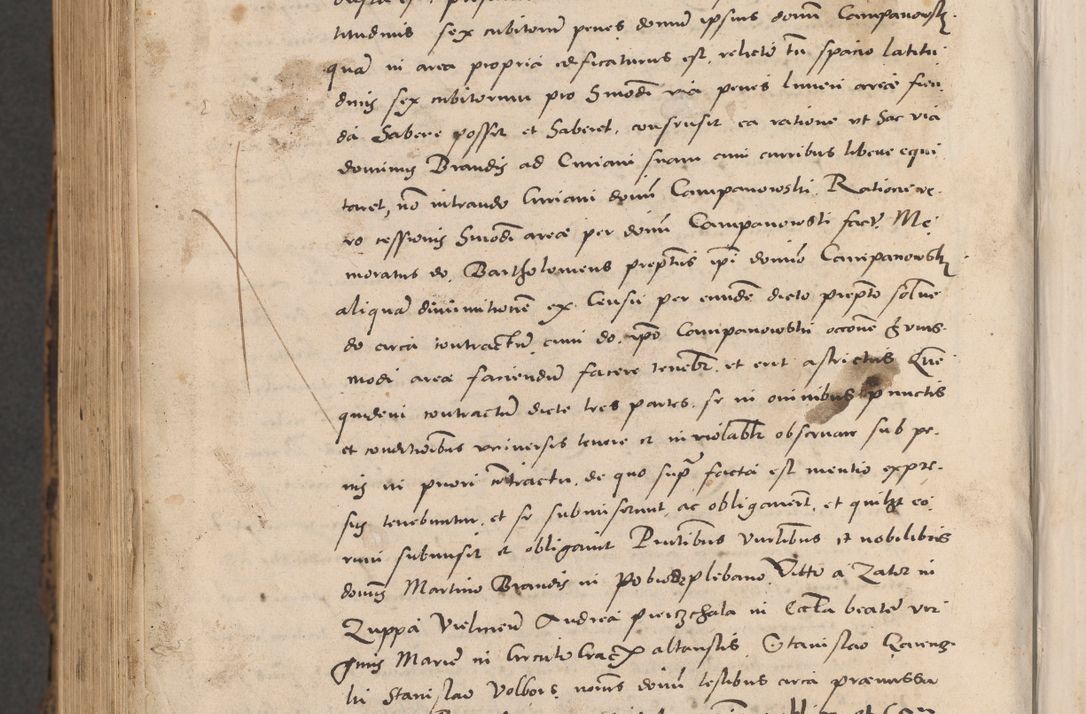 titudinis sex cubitorum penes domum ipsius domini Campanowsky
quam in area propria edificaturus est, relicto tamen spacio latitu
dinis sex cubitorum pro hmoi via penes limen areae fien
da habere possit et haberet, consensit ea ratione ut hac via
dominus Brandis ad Curiam suam cum curribus libere equi
taret, non intrando Curiam domini Campanowski. Ratione ve
ro cessionis hmoi areae per dominum Campanowski factae Me
moratus do. Bartholomeus preptus ipi domino Campanowsky
aliquam diminutionem ex Censu per eundem dicto prepto solven
do circa contractum cum do. ipo Campanowski occone huius
modi areae faciendum facere tenebr. et erit astrictus Que
quidem contractum dicte tres partes, se in omnibus punctis
et conditionibus universis tenere et inviolablr observare sub pe
nis in priori contractu, de quo supra facta est mentio expre
sis tenebuntur, et se submiserunt, ac obligarunt, et quilibet eo
rum submisit et obligavit Pntibus venlibus et nobilibus
dominis Martino Brandis in Pobiedr plebano, Vitto a Zator in
Zuppa Vielicien Andrea Pierzchala in Eccla beatae vir
ginis Mariae in Circulo Crac altarista, Stanislao
ski Stanislao Volbors. nomis domini testibus circa praemissa